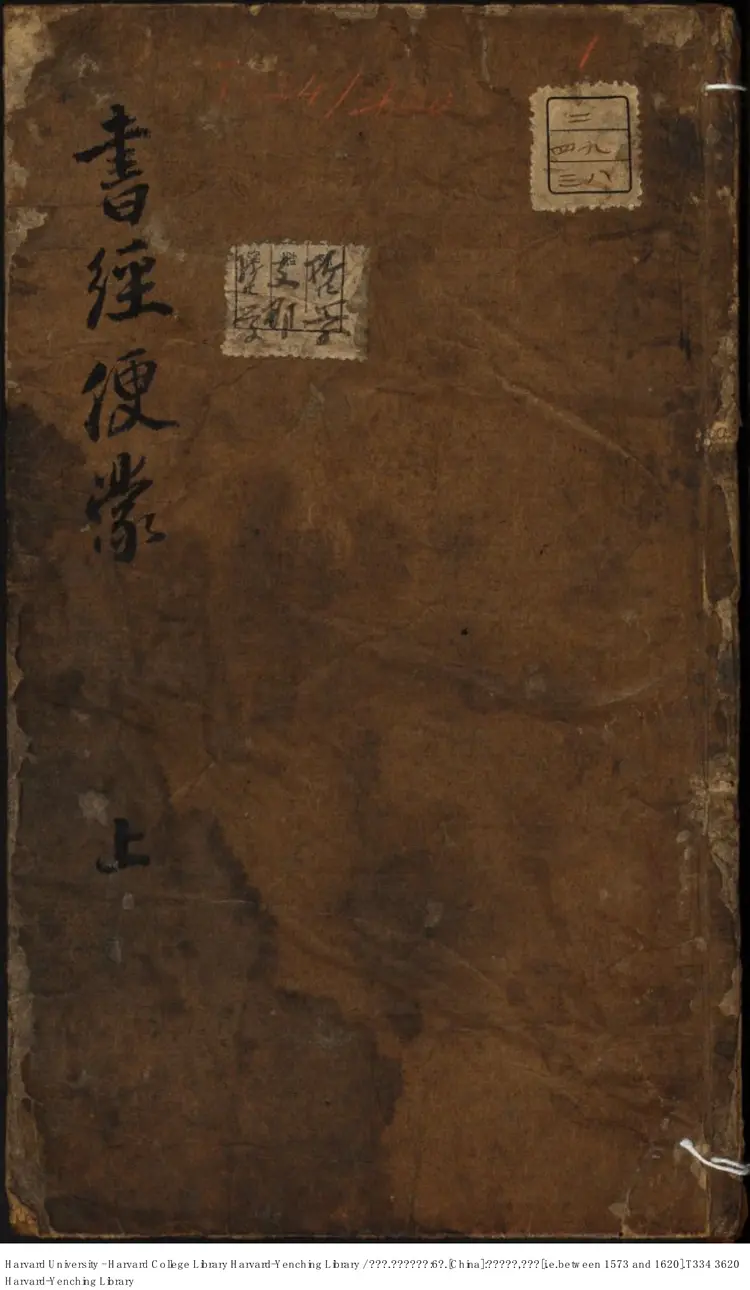 1
二
四九
三八
哲学
支那
書經便蒙
上
Harvard University - Harvard College Library Harvard-Yenching Library / ???.??????:6?.[China]:?????,???[i.e.between 1573 and 1620].T334 3620
Harvard-Yenching Library